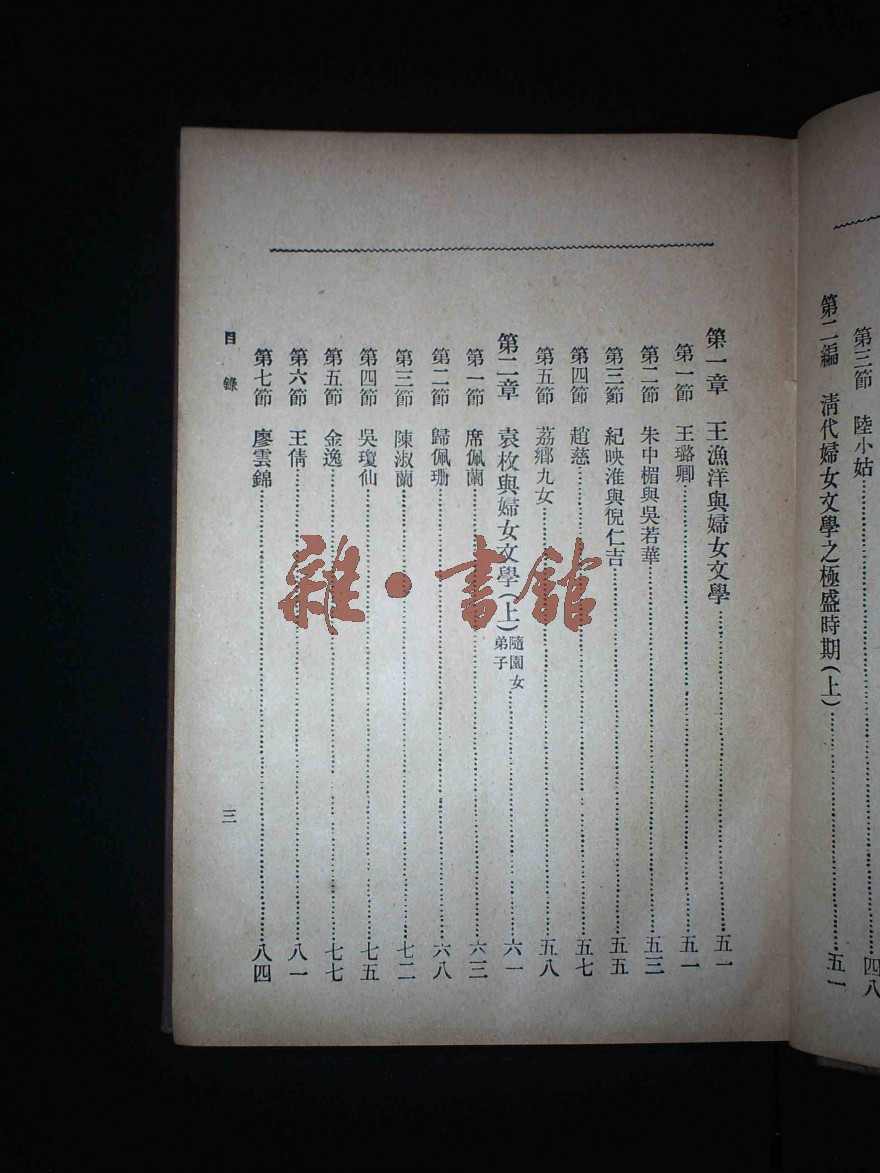 第三節　陸小姑……四八
第二編　清代婦女文學之極盛時期(上)……五一
第一章　王漁洋與婦女文學……五一
第一節　王璐卿……五一
第二節　朱中楣與吳若華……五三
第三節　紀映淮與倪仁吉……五五
第四節　趙慈……五七
第五節　荔鄉九女……五八
第二章　袁枚與婦女文學(上)隨園女弟子……六一
第一節　席佩蘭……六三
第二節　歸佩珊……六八
第三節　陳淑蘭……七二
第四節　吳瓊仙……七五
第五節　金逸……七七
第六節　王倩……八一
第七節　廖雲錦……八四
目錄　三
雜·書館